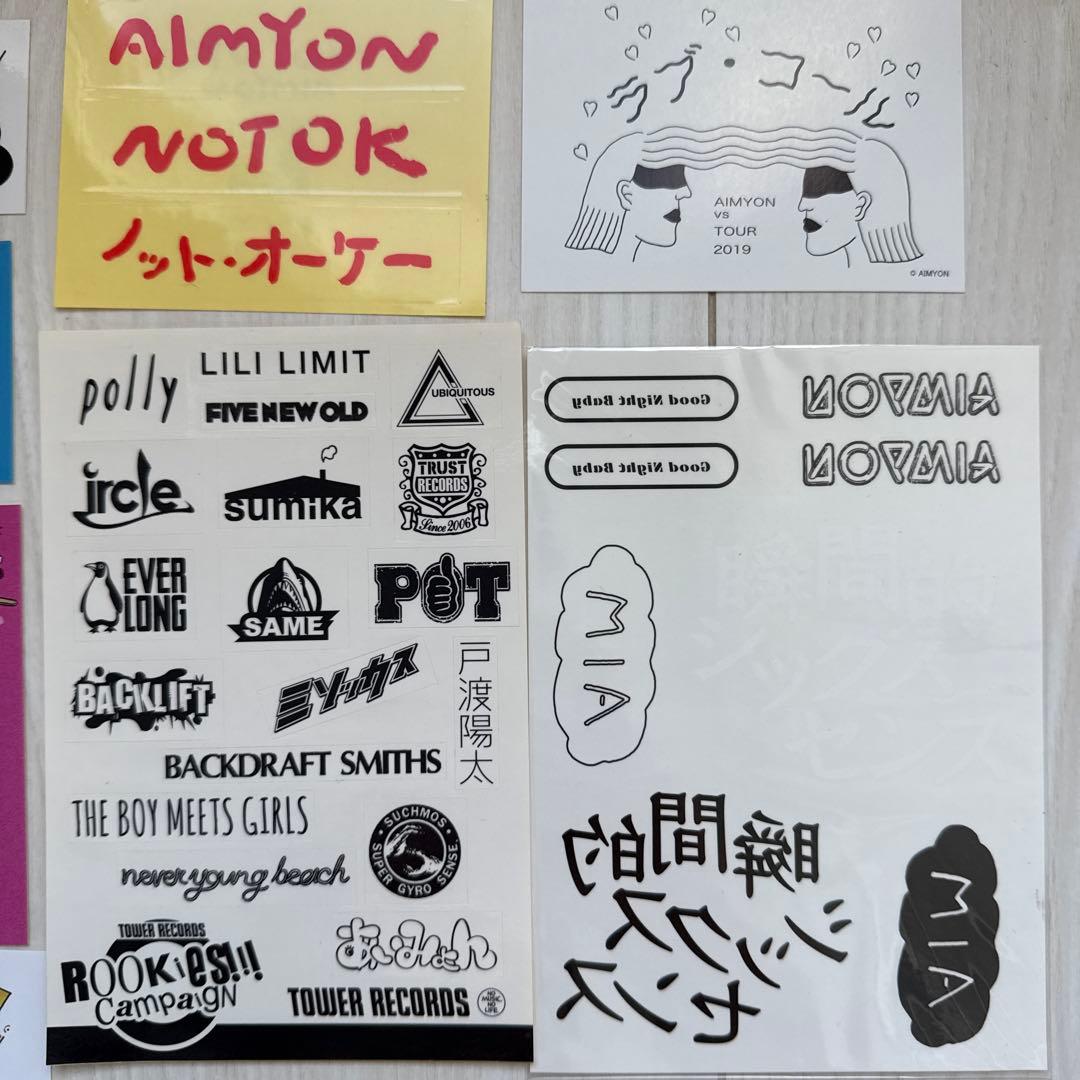 AIMYON
NOT OK
ノット・オーケー
AIMYON
vs
TOUR
2019
© AIMYON
polly
LILI LIMIT
FIVE NEW OLD
UBIQUITOUS
ircle
sumika
TRUST
RECORDS
Since 2006
EVER
LONG
SAME
POT
BACKLIFT
ミソッカス
戸渡陽太
BACKDRAFT SMITHS
THE BOY MEETS GIRLS
SUCHMOS
SUPER GYRO SENSE.
never young beach
TOWER RECORDS
ROOKiES!!!
CampaiGN
あいみょん
TOWER RECORDS
NO
MUSIC,
NO
LIFE.
Good Night Baby
AIMYON
Good Night Baby
AIMYON
MIA
瞬間的
シックス
センス
MIA